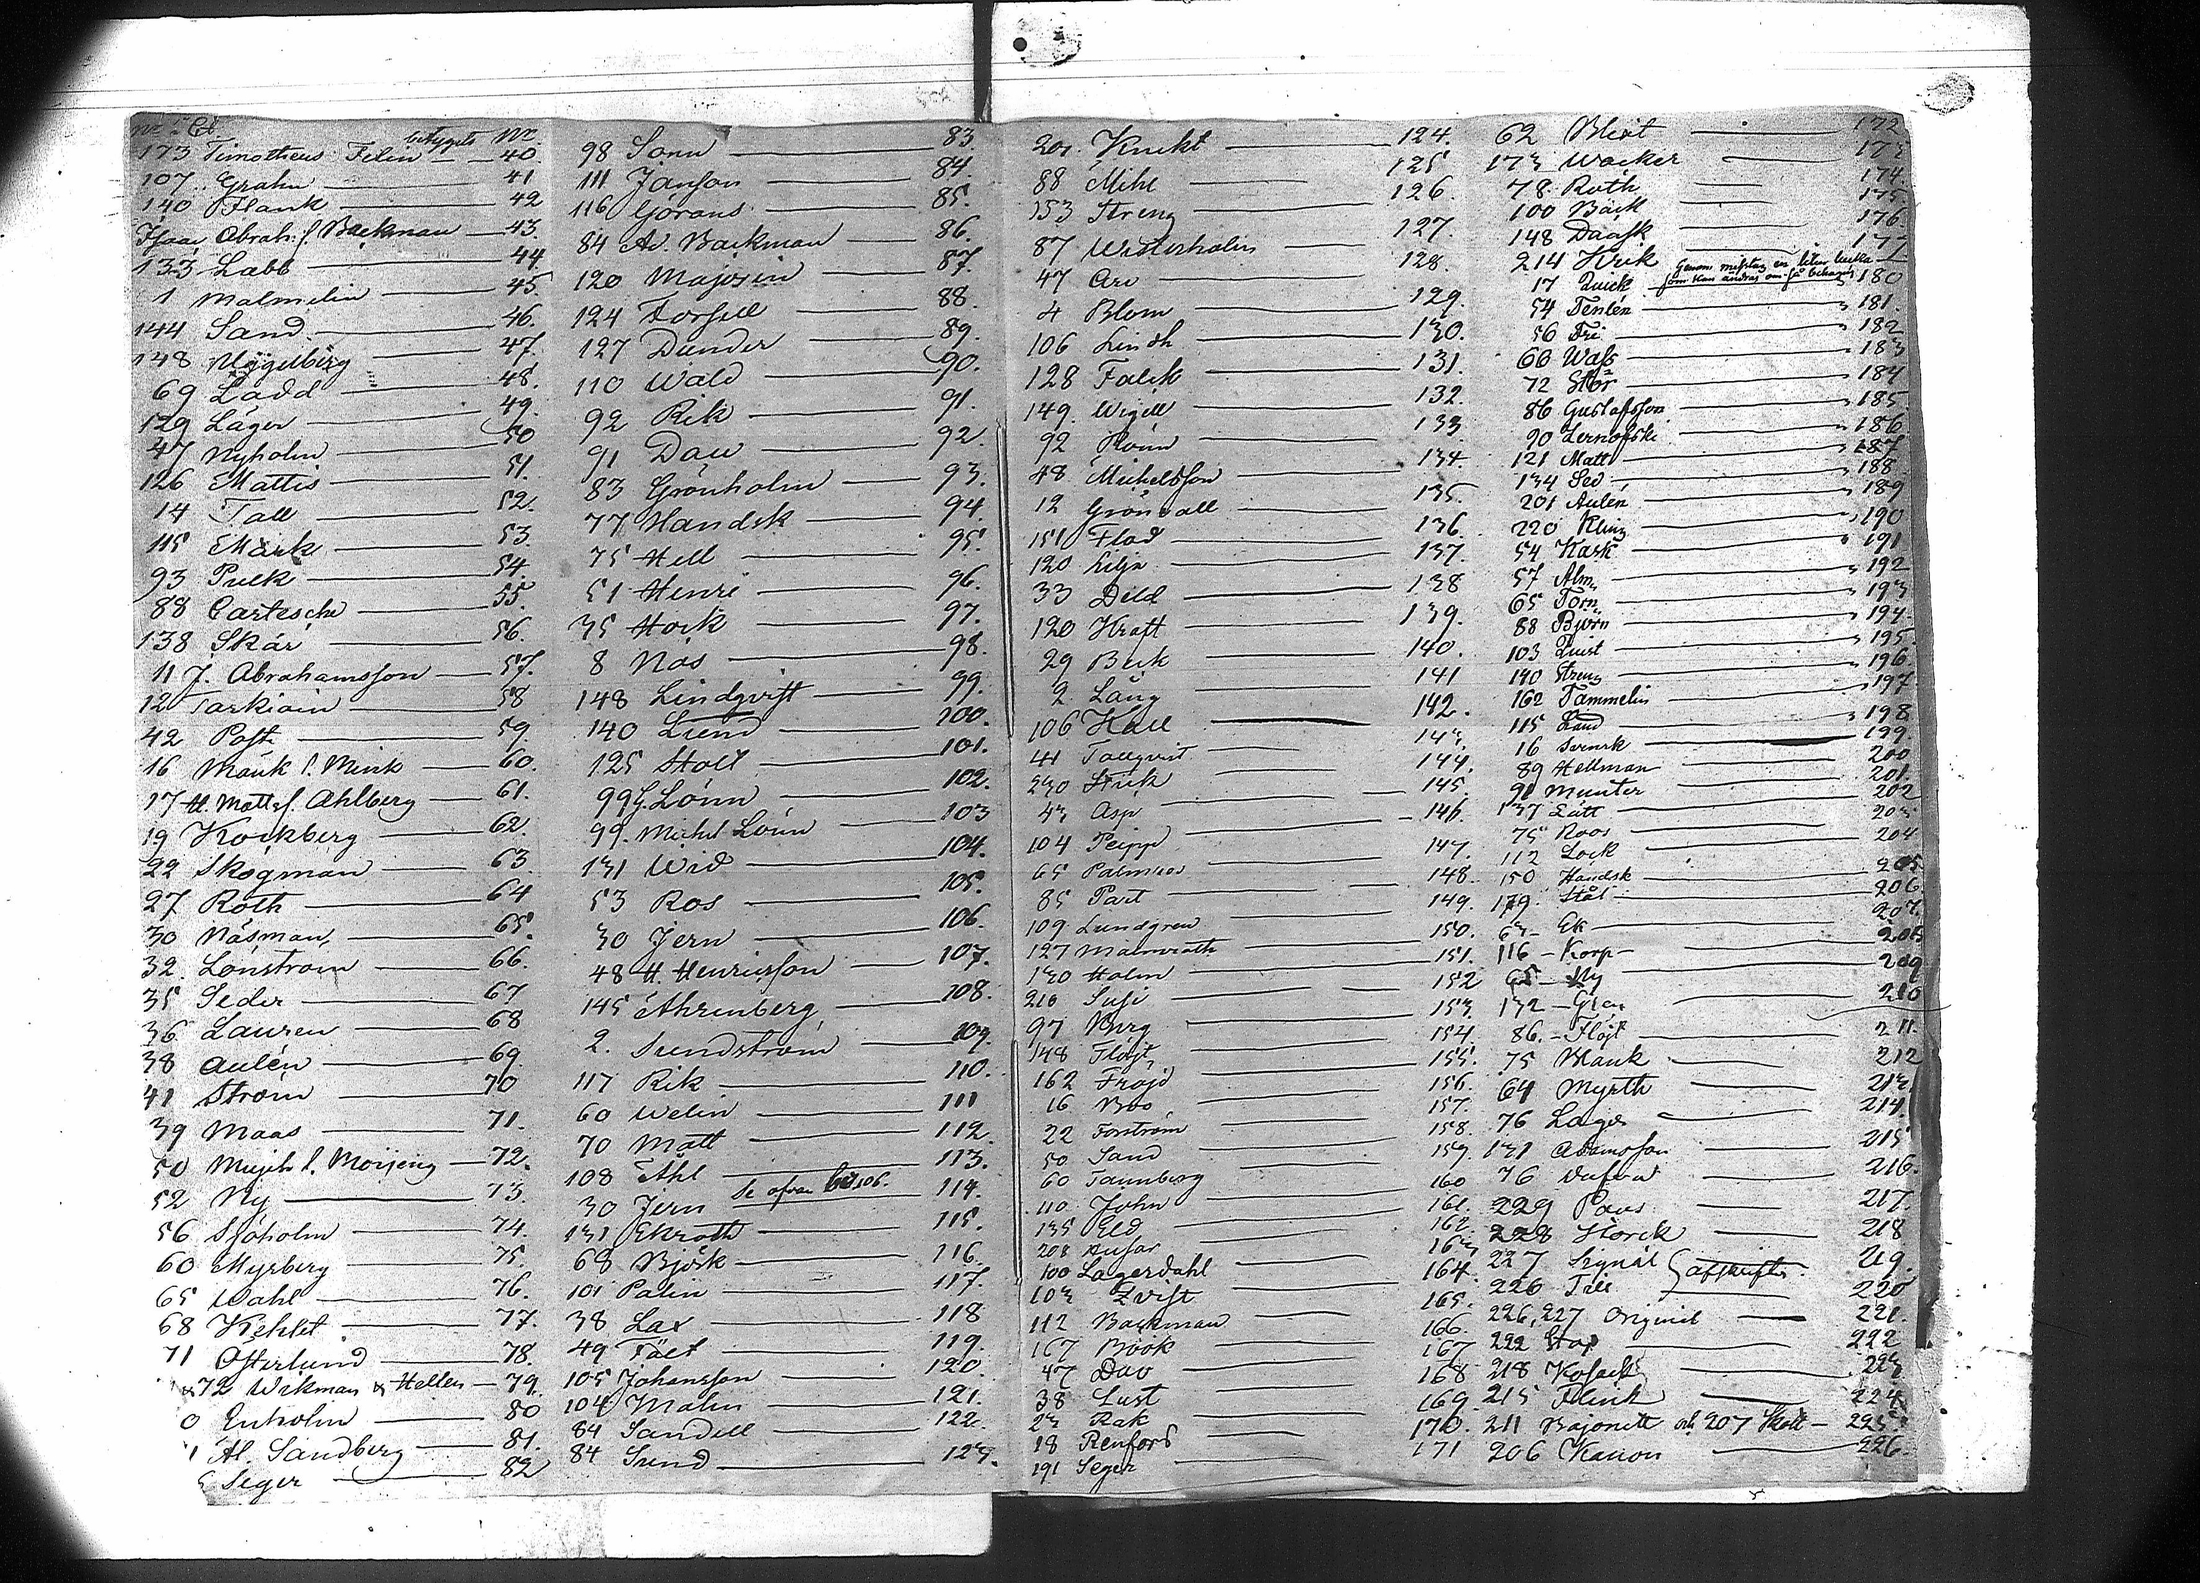 betygets Nr.
173 Timotheus Felin — 40.
107 Grahn — 41
140 Flank — 42
Isaac Abrah. s. Backman — 43.
133 Labb — 44
1 Malmelin — 45
144 Sand — 46.
148 — 47.
69 Ladd — 48.
129 Läger — 49.
47 Nyholm — 50
126 Mattis — 51.
14 Tall — 52.
115 Mårk — 53.
93 Pulk — 54.
88 Cartesche — 55.
138 Skär — 56.
11 J. Abrahamsson — 57.
12 Tarkiain — 58
42 Post — 59.
16 Mauk l. Mink — 60.
17 H. Matts f. Ahlberg — 61.
19 Kockberg — 62.
22 Skogman — 63.
27 Roth — 64
30 Näsman — 65.
32. Lönström — 66.
35 Seder — 67
36 Lauren — 68
38 Aulén — 69.
41 Ström — 70
39 Maas — 71.
50 l. Morjeng — 72.
52 Ny — 73.
56 Sjöholm — 74.
60 Myrberg — 75.
65 Wahl — 76.
68 — 77.
71 Osterlund — 78.
72 Wikman & Hellen — 79.
0 Enholm — 80
1 Al. Sandberg — 81.
Seger — 82
98 Sonn — 83.
111 Janson — 84.
116 Görans — 85.
84 Ad. Backman — 86.
120 Majosin — 87.
124 Forsell — 88.
127 Dunder — 89.
110 Wald — 90.
92 Rik — 91.
91 Dau — 92.
83 Grönholm — 93.
77 Handsk — 94.
75 Hell — 95.
51 Henri — 96.
35 Hock — 97.
8 Nås — 98.
148 Lindqvist — 99.
140 Lund — 100.
125 Stolt — 101.
99 G. Lönn — 102.
99. Michel Lönn — 103
131 Wid — 104.
53 Ros — 105.
30 Jern — 106.
48 H. Henricsson — 107.
145 Ahrenberg — 108.
2. Sundström — 109.
117 Rik — 110.
60 Welin — 111
70 Matt — 112.
108 Ahl — 113.
30 Jern Se ofvan 106. 114.
131 Ekroth — 115.
68 Björk — 116.
101 Palin — 117.
38 Lax — 118
49 Fält — 119.
105 Johansson — 120.
104 Malm — 121.
84 Sandell — 122.
84 Sund — 123.
201. Knekt — 124.
88 Mihl — 125
153 Streng — 126.
87 Westerholm — 127.
47 Aro — 128.
4 Blom — 129.
106 Lindh — 130.
128 Falck — 131.
149. Wigell — 132.
92 Rönn — 133
48 Michelsson — 134.
12 Grönvall — 135.
151 Flod — 136.
120 Lilja — 137.
33 Deld — 138
120 Kraft — 139.
29 Beck — 140.
2 Lång — 141
106 Hall — 142.
41 Tallqvist — 143.
230 Strik — 144.
43 Asp — 145.
104 Peipp — 146.
65 Palmroos — 147.
85 Part — 148.
109 Lundgren — 149.
127 Malmroth — 150.
130 Holm — 151.
210 Susi — 152
97 Berg — 153.
148 Flöjt — 154.
162 Fröjd — 155.
16 Boo — 156.
22 Forström — 157.
50 Sand — 158.
60 Tannberg — 159.
110 John — 160
135 Eld — 161.
208 Husar — 162.
100 Lagerdahl — 163
103 Qvist — 164.
112 Backman — 165.
167 Böök — 166.
47 Duo — 167
38 Lust — 168
23 Rak — 169.
18 Renfors — 170.
191 Seger — 171
62 Blixt — 172.
173 Wacker — 173
78 Roth — 174.
100 Bäck — 175.
148 Daask — 176.
214 Hvik — 177
17 Quick — 180
54 Tenlén — 181.
56 Fri — 182
60 Wass — 183
72 Stor — 184
86 Gustafsson — 185.
90 Zernofski — 186
121 Matt — 187
134 Sed — 188
201 Aulén — 189
220 Kling — 190
54 Kask — 191
57 Alm — 192
65 Torn — 193
88 Björn — 194.
103 Quist — 195.
140 Streng — 196
162 Tammelin — 197
115 Lund — 198
16 Svensk — 199
89 Hellman — 200
91 Munter — 201.
137 Lätt — 202
75 Roos — 203
112 Lock — 204
150 Handsk — 205.
179 Stål — 206.
63 — Ek — 207.
116 — Korp — 208
65 — Ny — 209
132 — Glan — 210
86. — Flöjt — 211.
75 Mauk — 212
64 Myrth — 213.
76 Lager — 214
131 Adamsson — 215
76 Dufva — 216.
229 Paus — 217.
228 Storck — 218.
227 Signal } afskrifter. 219.
226 Till — 220
226, 227 Original — 221.
222 Stop — 222
218 Kosack — 223
215 Flink — 224
211 Bajonett och 207 Skott — 225
206 Kanon — 226.